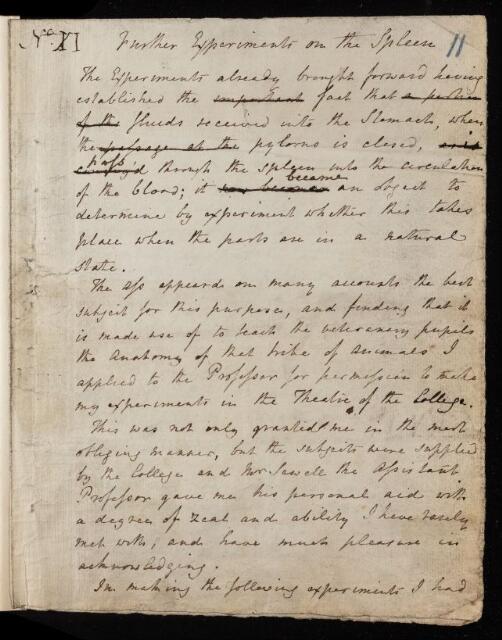 No. XI
11
Further Experiments on the Spleen
The Experiments already brought forward having
established the important fact that a portion
of the fluids received into the Stomach, when
the passage at the pylorus is closed,
pass
through the spleen into the circulation
became
of the blood; it an object to
determine by experiment whether this takes
place when the parts are in a natural
state.
The ass appeared on many accounts the best
subject for this purpose, and finding that it
is made use of to teach the veterinary pupils
the anatomy of that tribe of animals I
applied to the Professor for permission to make
my experiments in the Theatre of the College.
This was not only granted me in the most
obliging manner, but the subjects were supplied
by the College and Mr Sewell the Assistant
Professor gave me his personal aid with
a degree of zeal and ability I have rarely
met with, and have much pleasure in
acknowledging.
In making the following experiments I had